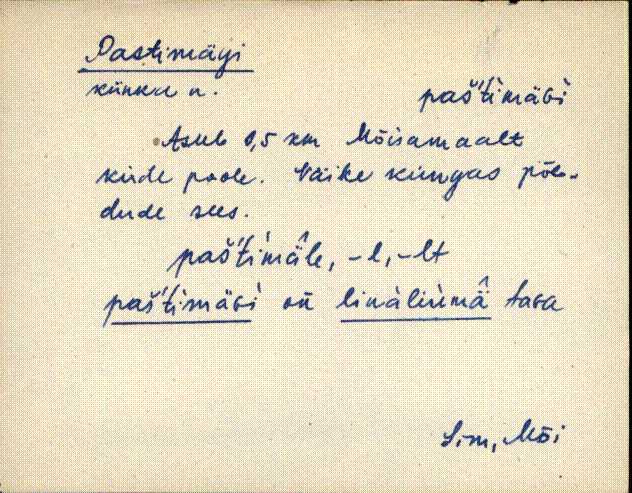 Pastimägi
künka n.
paš'tìmäɢì
Asub 0,5 km Mõisamaalt
kirde poole. Väike küngas põl-
dude sees.
paš'tìmä̂le, -l, -lt
paš'tìmäɢì on linàlinmä̂ taɢa
Sim, Mõi